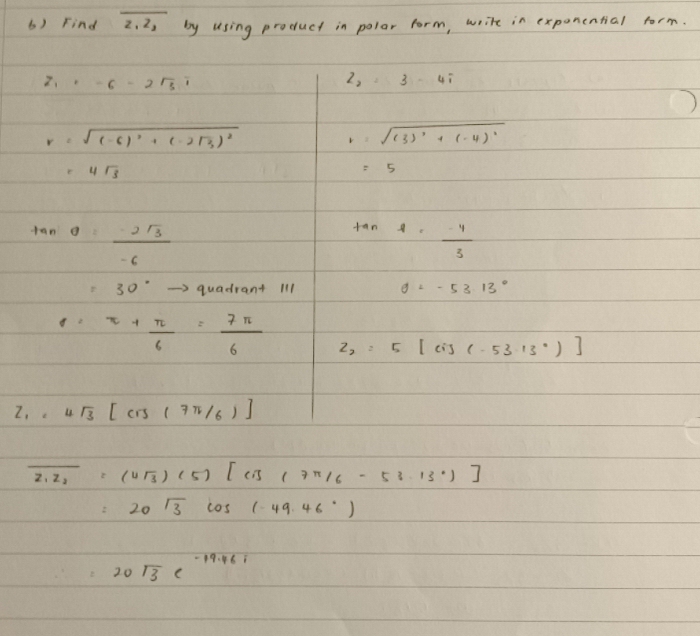 b) Find \overline{z₁z₂} by using product in polar form, write in exponential form.
z₁ = -6 - 2√3 i
r = √(-6)² + (-2√3)²
= 4√3
tan θ = -2√3 / -6
= 30° → quadrant III
θ = π + π/6 = 7π/6
z₁ = 4√3 [cis (7π/6)]
z₂ = 3 - 4i
r = √(3)² + (-4)²
= 5
tan θ = -4/3
θ = -53.13°
z₂ = 5 [cis (-53.13°)]
\overline{z₁z₂} = (4√3)(5) [cis (7π/6 - 53.13°)]
= 20√3 cos (-49.46°)
= 20√3 e^{-49.46i}